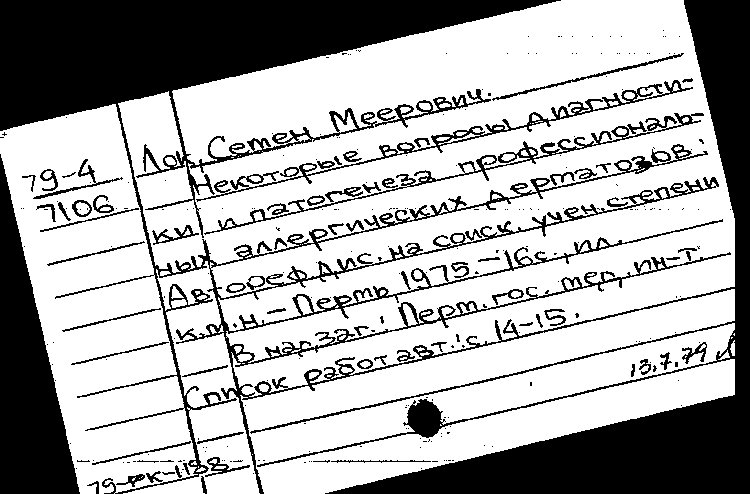 79-4
7106
Лок, Семен Меерович.
Некоторые вопросы диагности-
ки и патогенеза профессиональ-
ных аллергических дерматозов:
Автореф. дис. на соиск. учен. степени
к.м.н. - Пермь, 1975. - 16с., ил.
В надзаг.: Перм. гос. мед. ин-т.
Список работ авт.: с. 14-15.
13.7.79
79-рк-1188